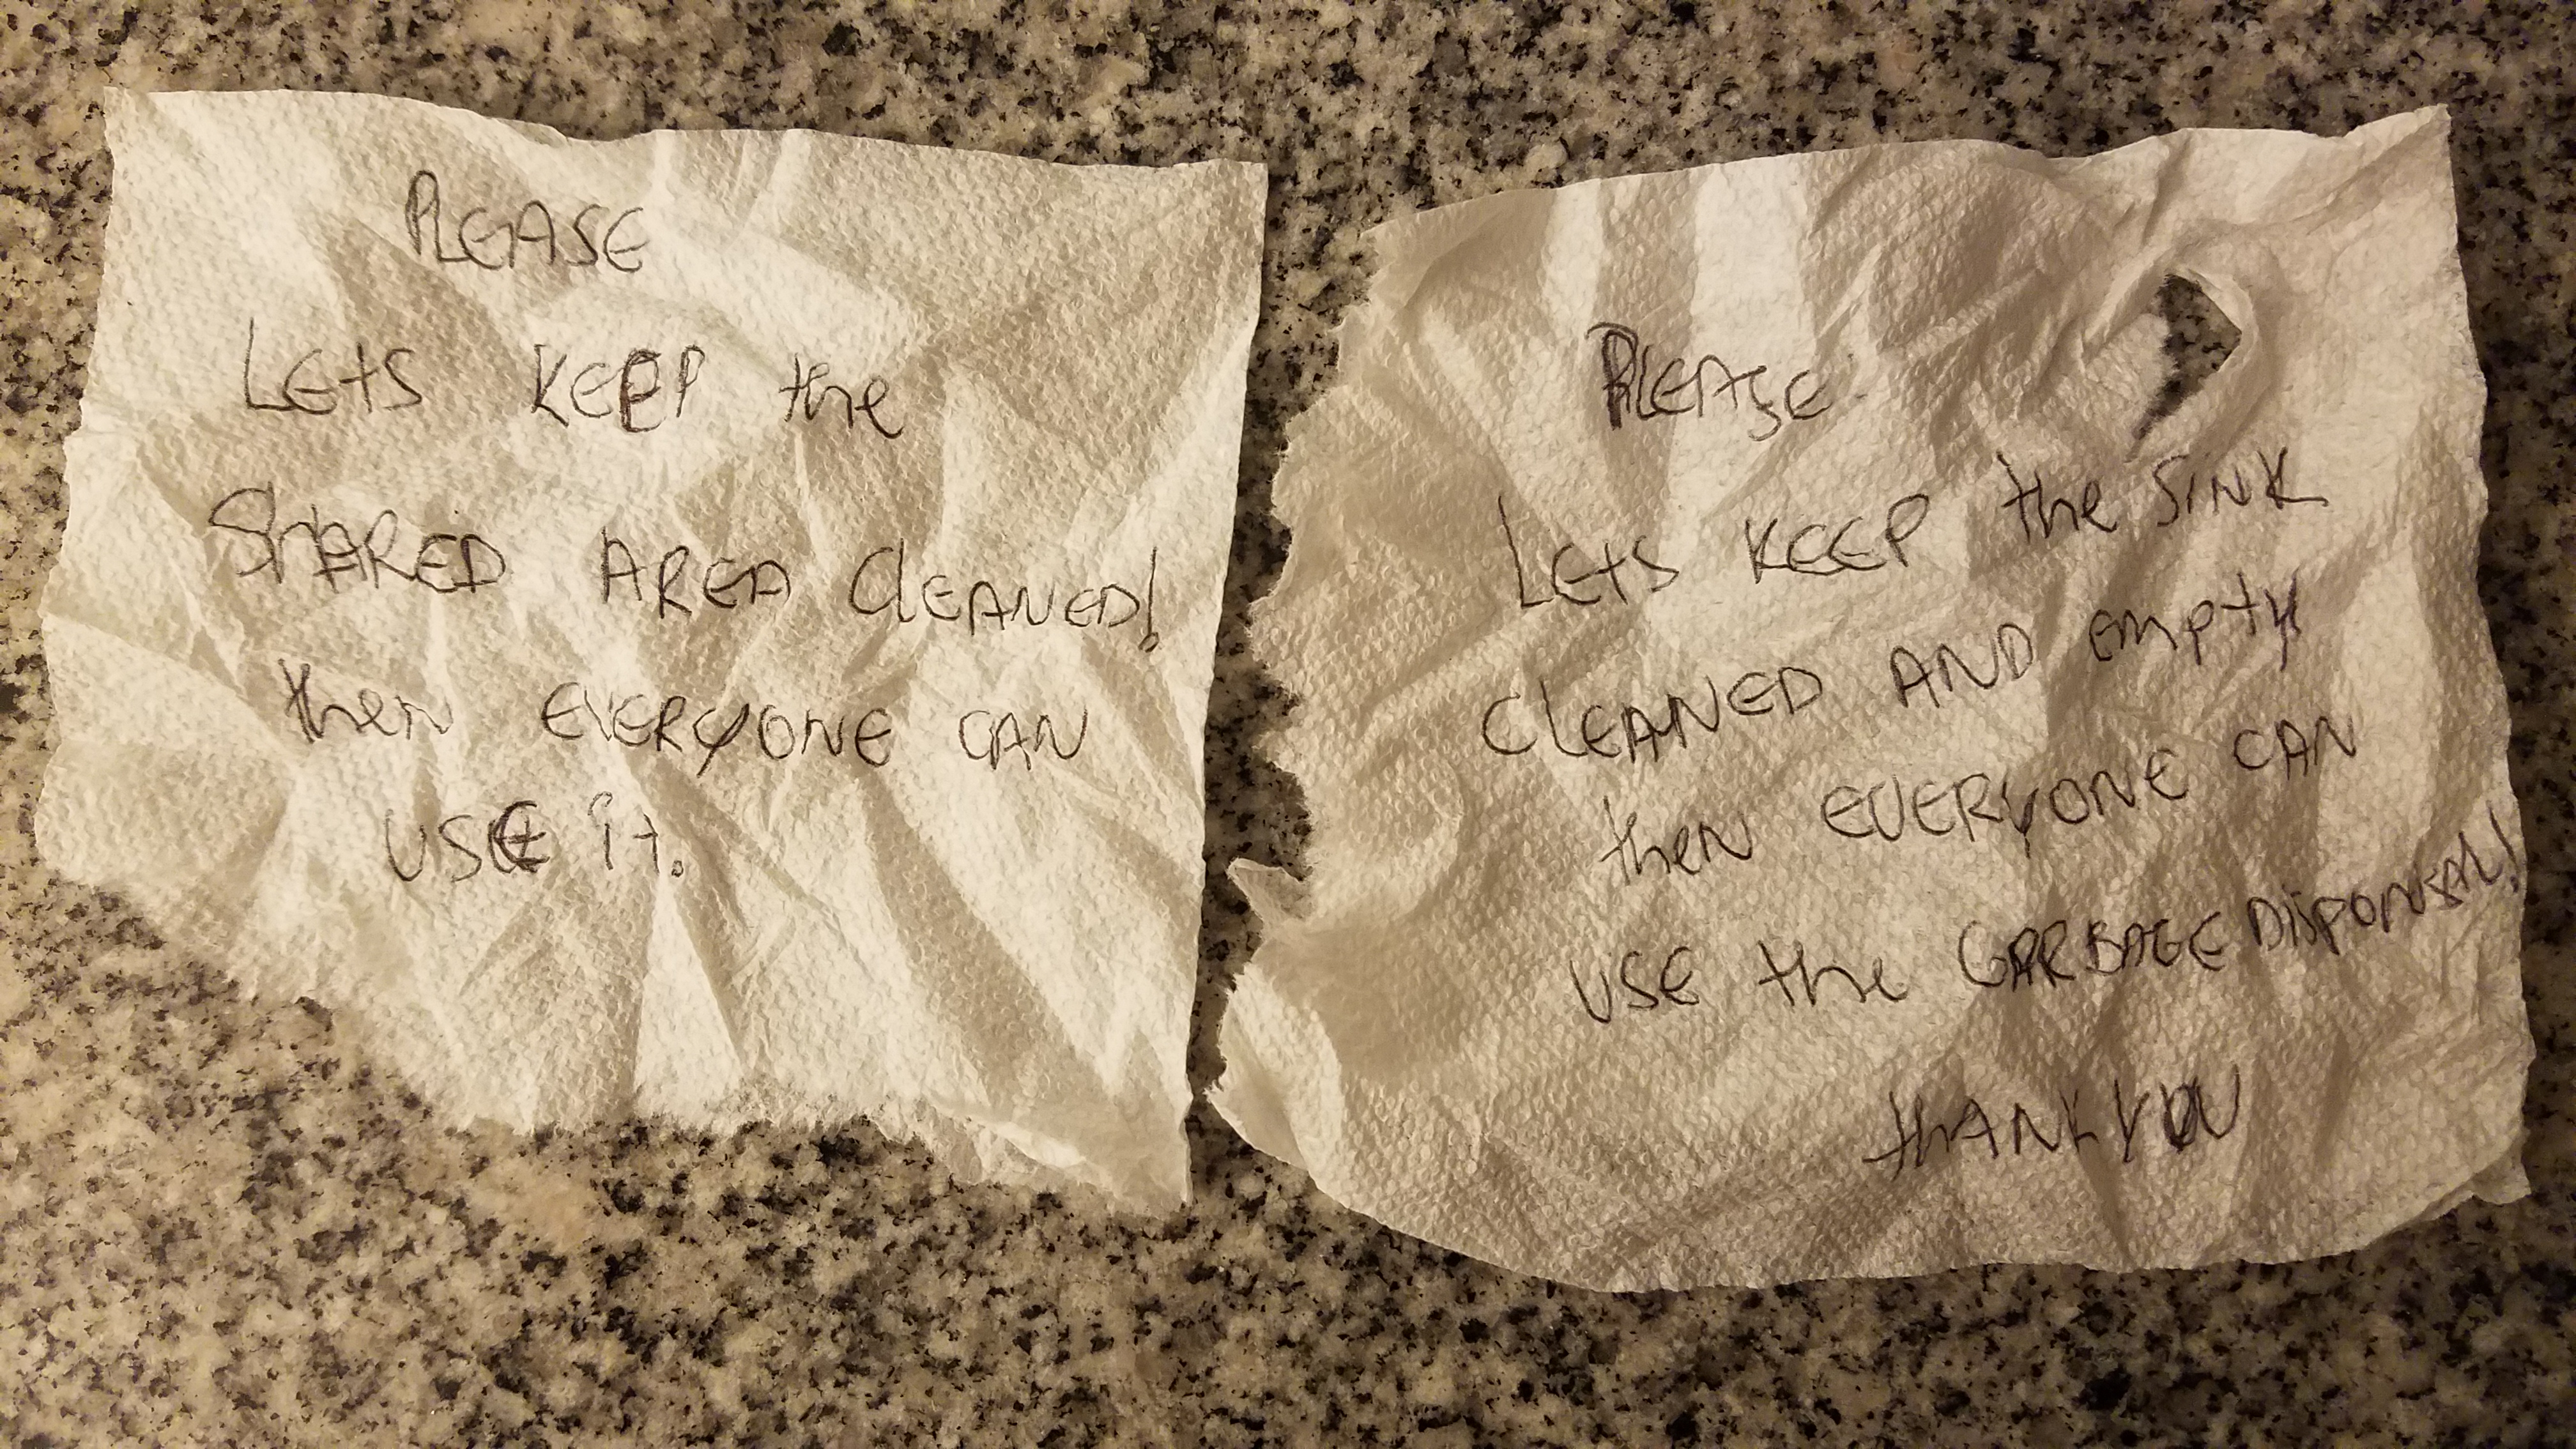 PLEASE
LEtS KEEP the
SHARED AREA ClEANED!
then EVERYONE CAN
USE it.
PLEASE
LEtS KEEP the SINK
ClEANED AND empty
then EVERYONE CAN
USE the GARBAGE
thANK YOU